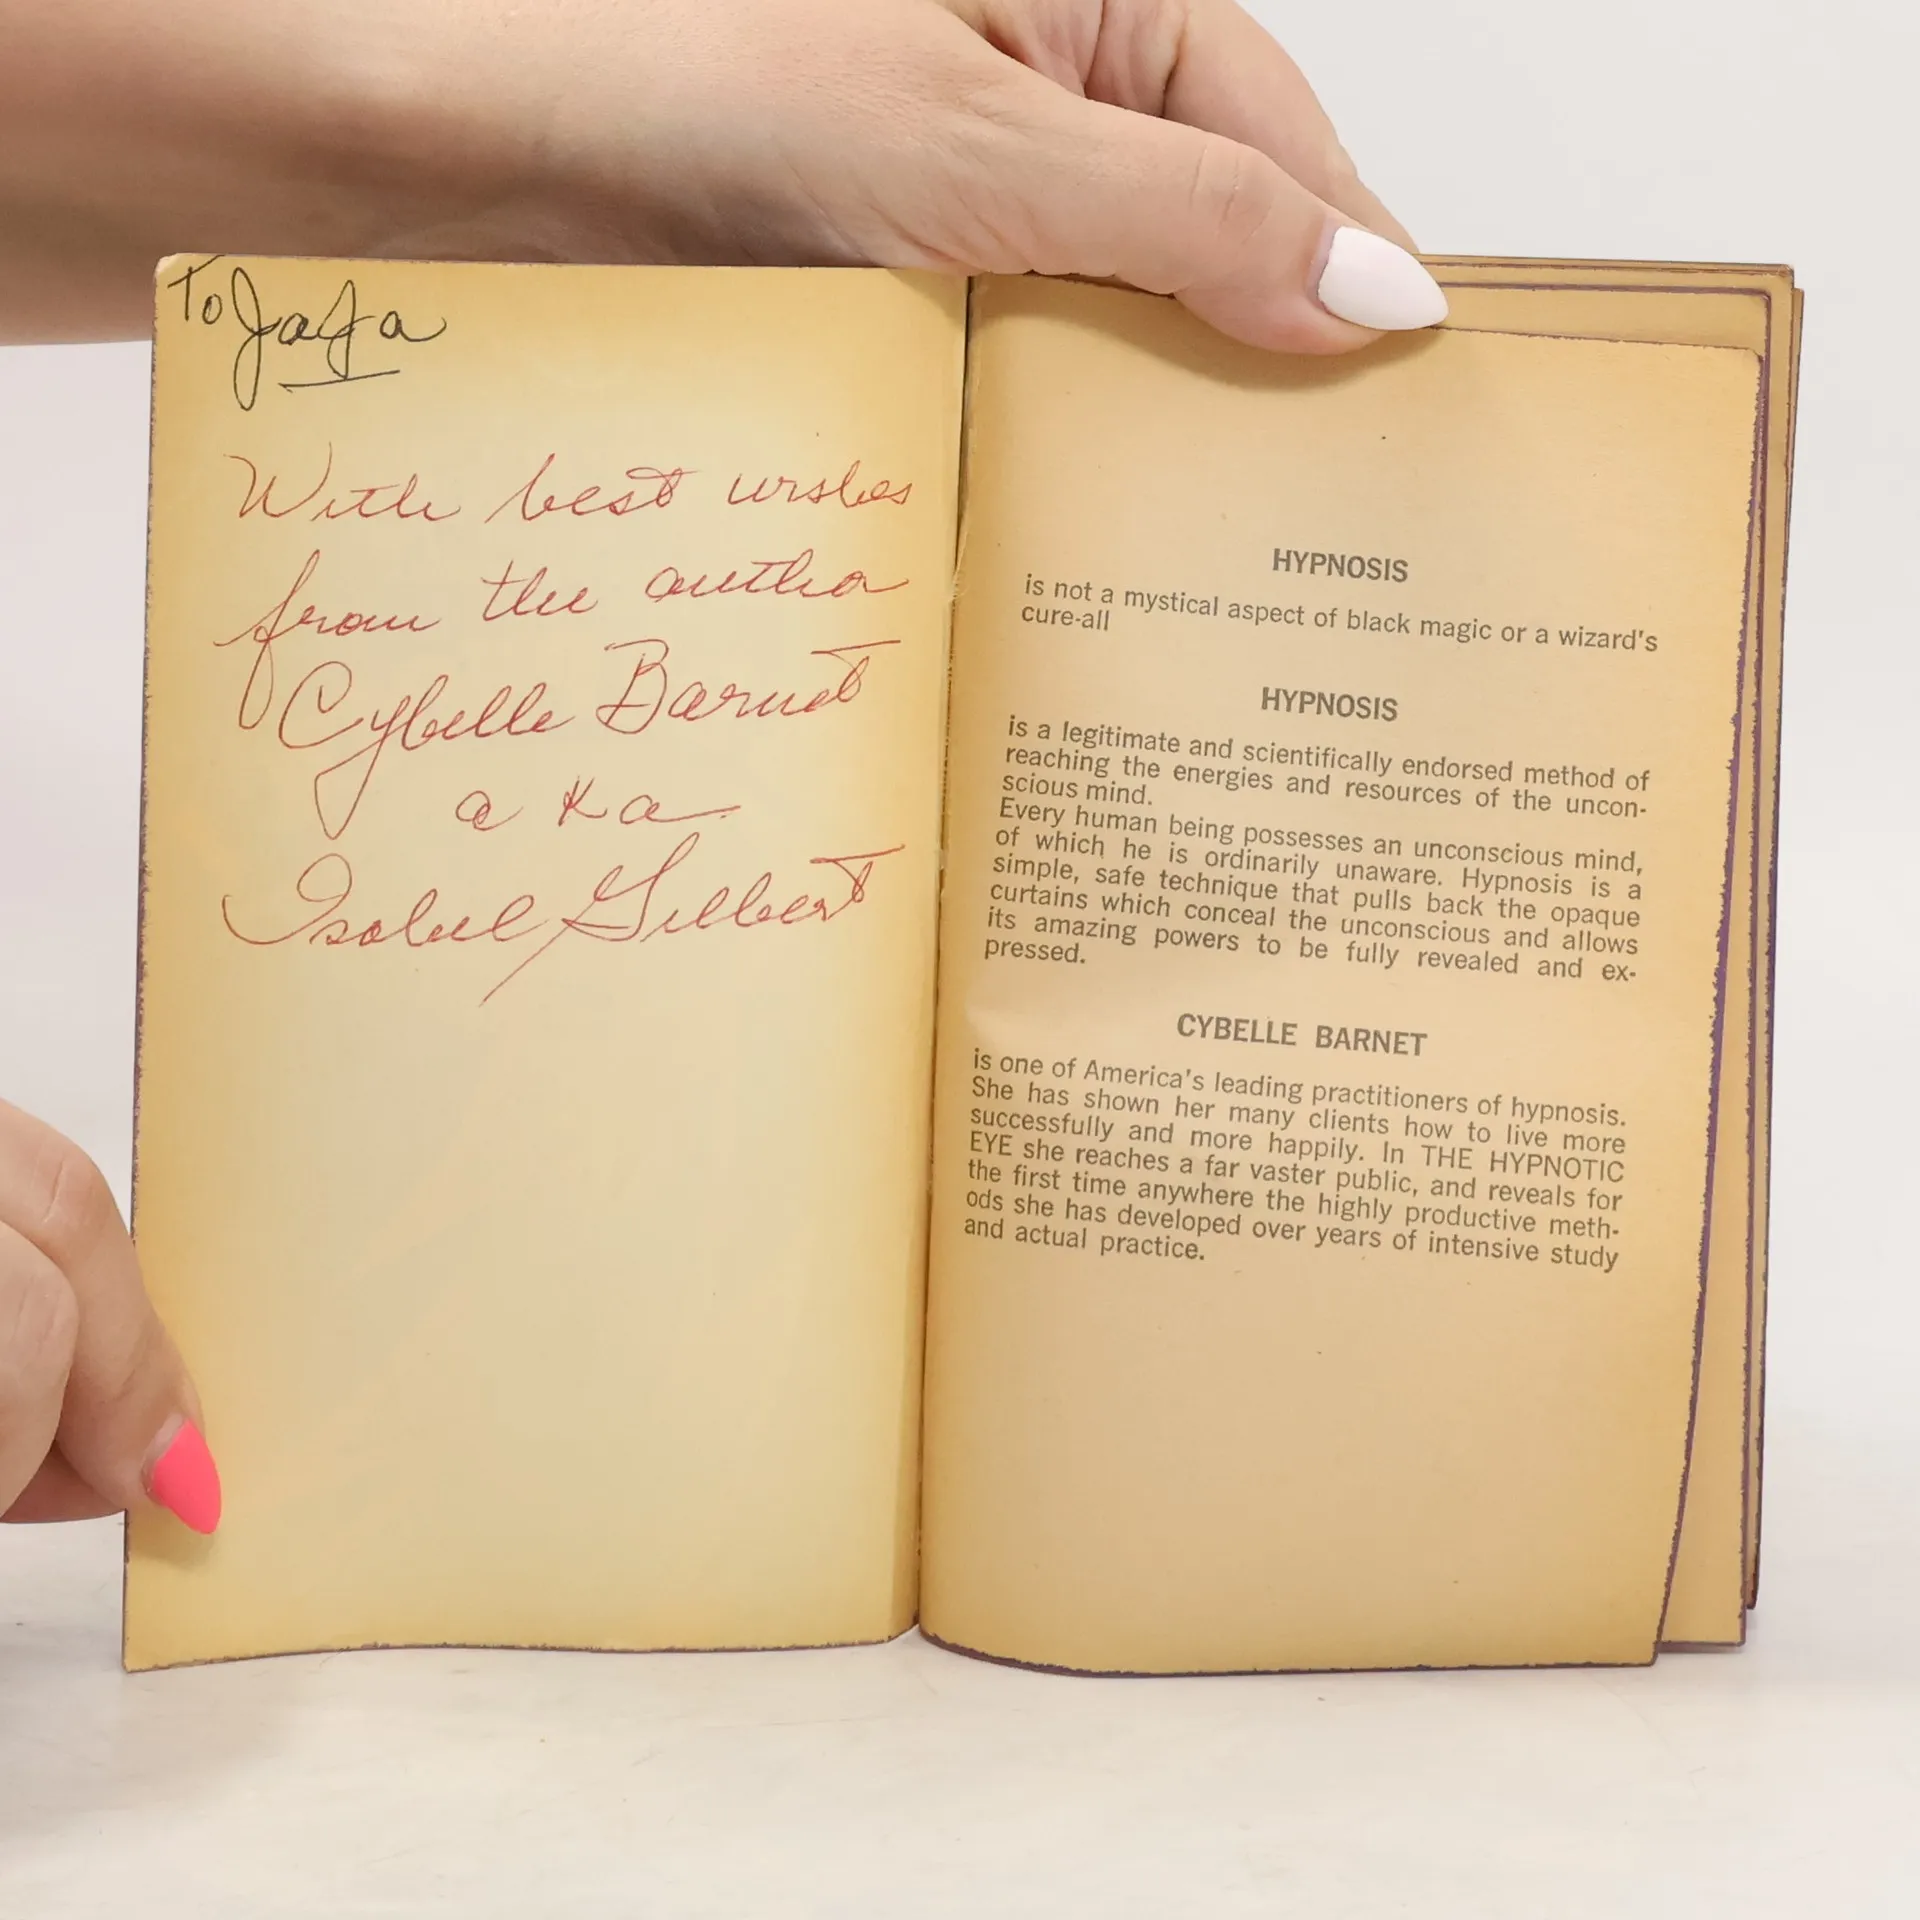 To Jafa
With best wishes
from the author
Cybelle Barnet
a k a
Isobel Gilbert
HYPNOSIS
is not a mystical aspect of black magic or a wizard's
cure-all
HYPNOSIS
is a legitimate and scientifically endorsed method of
reaching the energies and resources of the uncon-
scious mind.
Every human being possesses an unconscious mind,
of which he is ordinarily unaware. Hypnosis is a
simple, safe technique that pulls back the opaque
curtains which conceal the unconscious and allows
its amazing powers to be fully revealed and ex-
pressed.
CYBELLE BARNET
is one of America's leading practitioners of hypnosis.
She has shown her many clients how to live more
successfully and more happily. In THE HYPNOTIC
EYE she reaches a far vaster public, and reveals for
the first time anywhere the highly productive meth-
ods she has developed over years of intensive study
and actual practice.